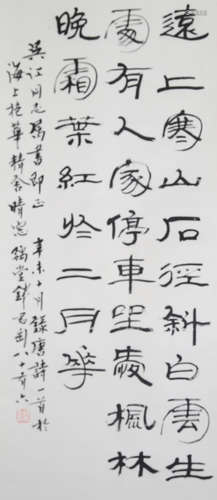 遠上寒山石徑斜白雲生
處有人家停車坐愛楓林
晚霜葉紅於二月華
吳江同志屬書即正 辛未十月錄唐詩一首於
海上挹華精舍晴窗 錢君匋八十有六